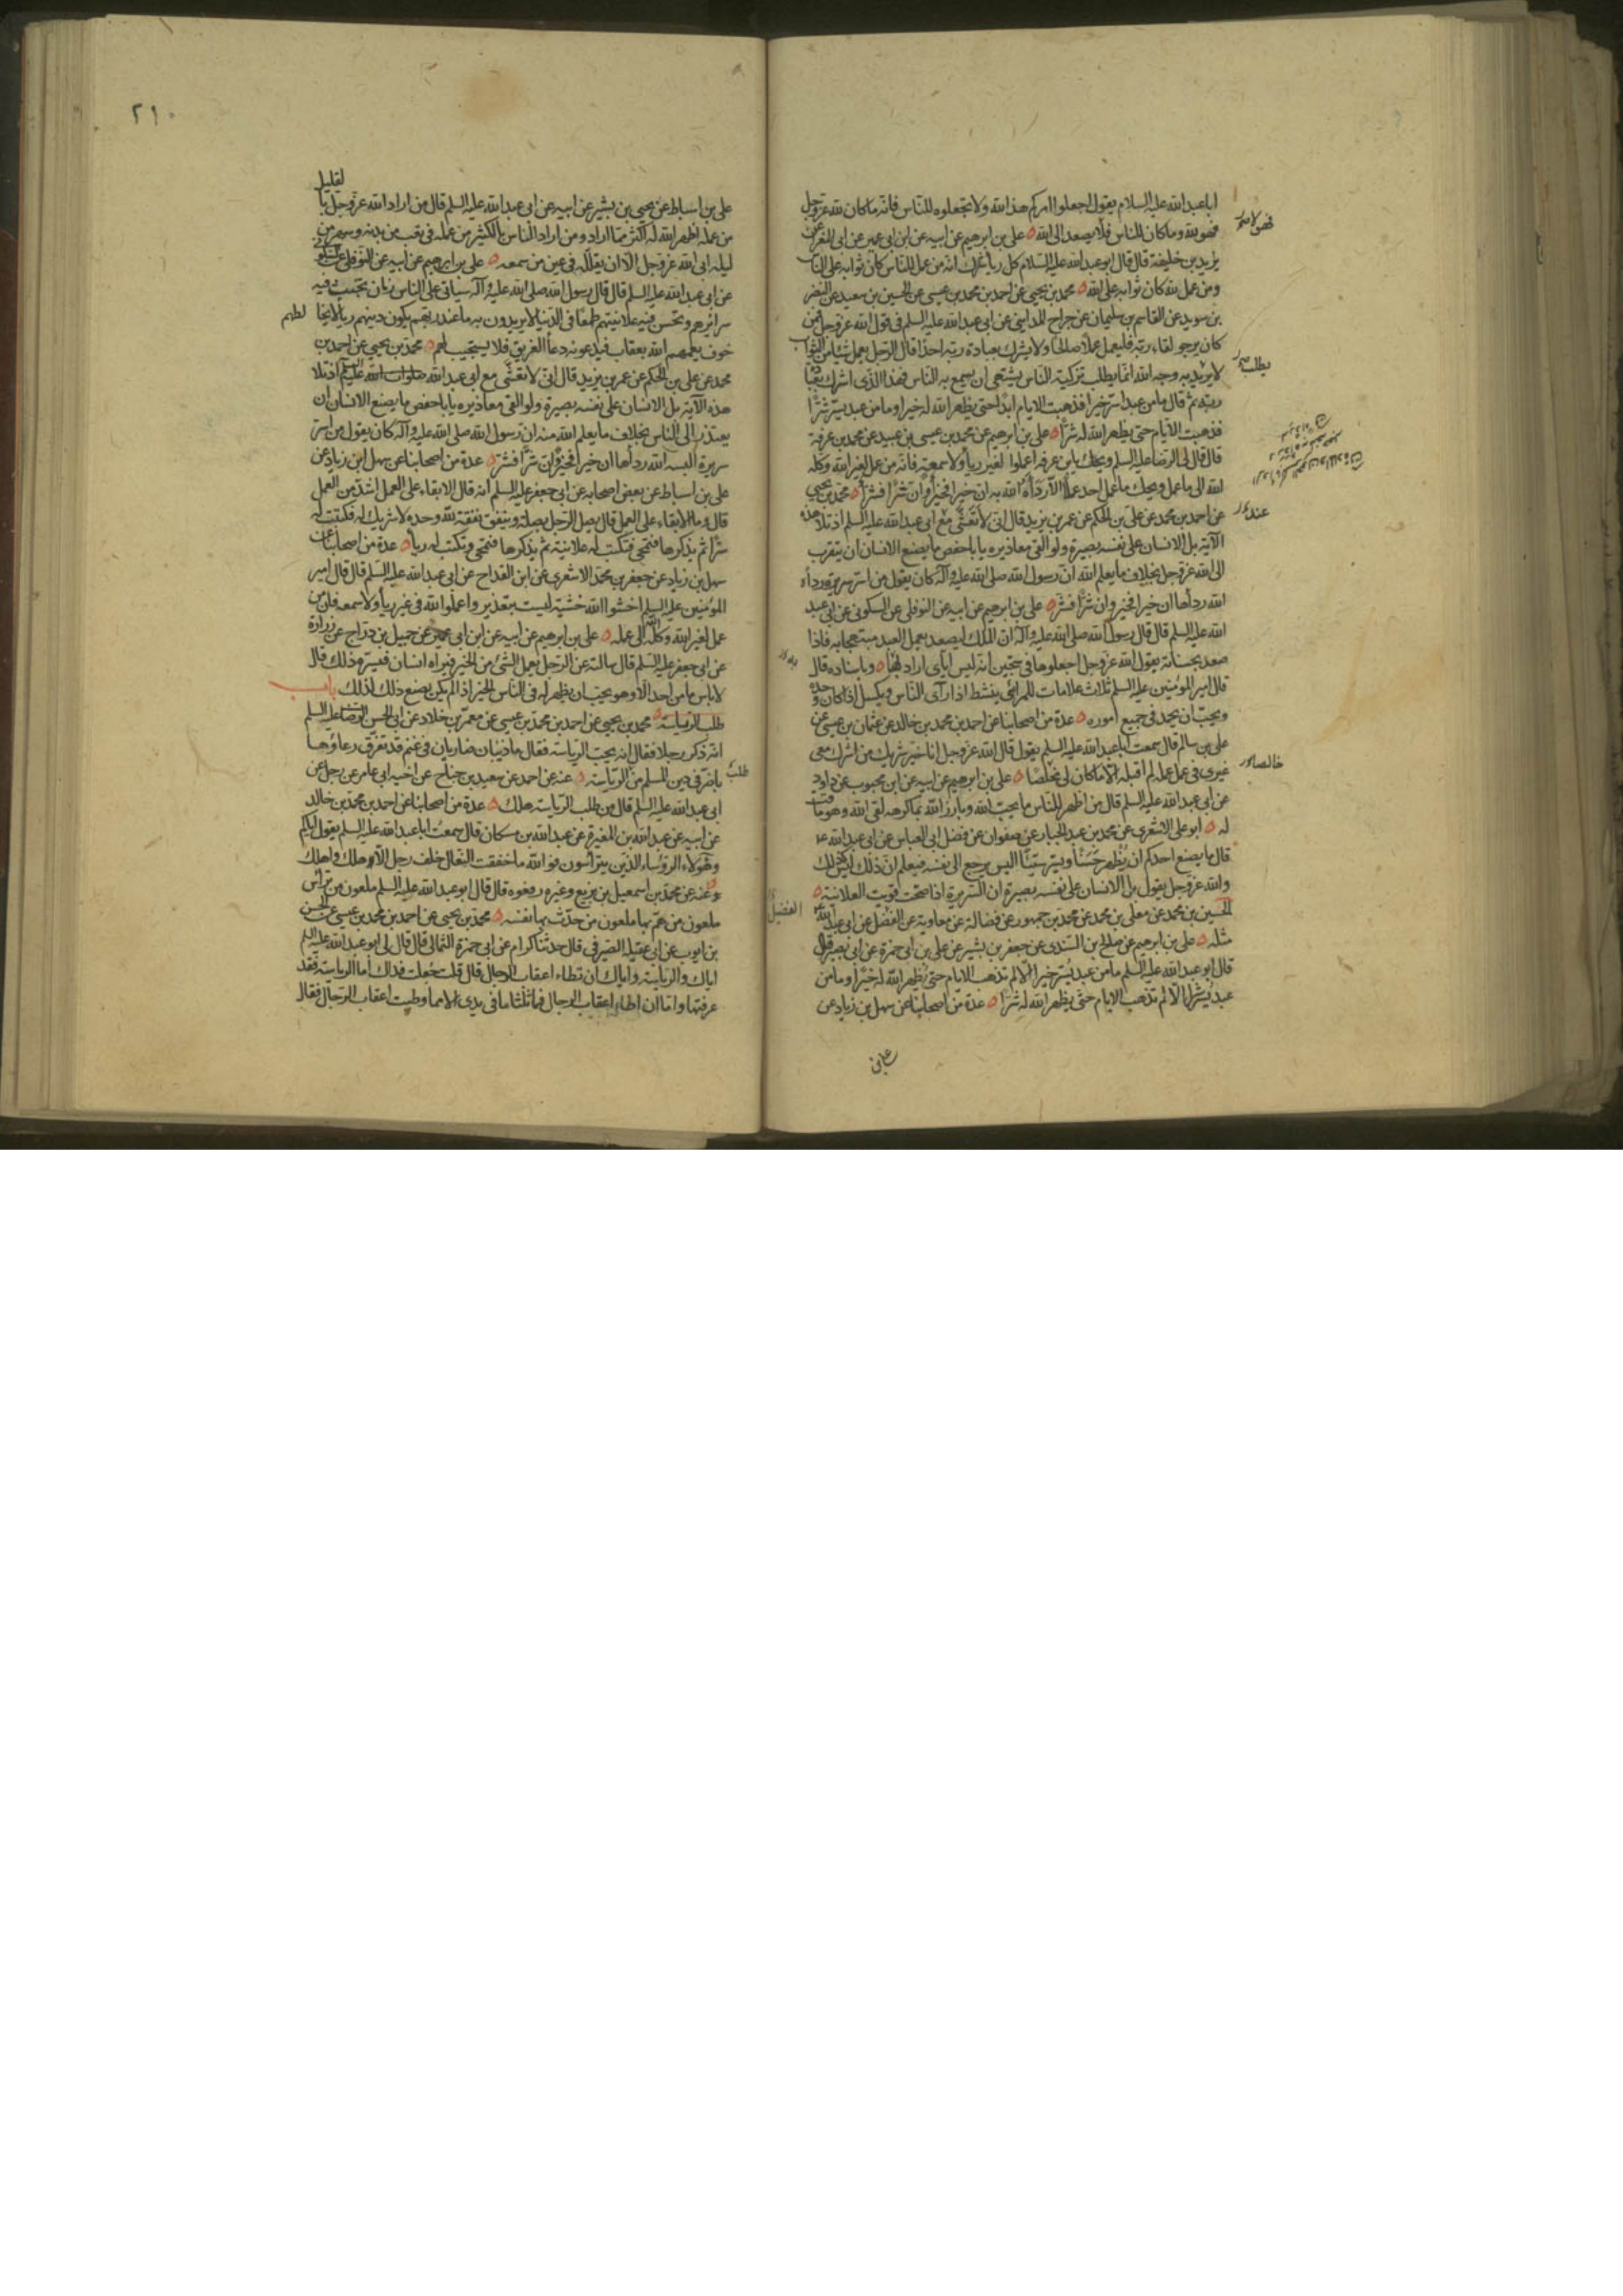 ابا عبدالله عليه السلام يقول اجعلوا امركم هذا لله ولا تجعلوه للناس فانه ما كان لله عز وجل
فهو لله وما كان للناس فلا يصعد الى الله ه على بن ابرهيم عن ابيه عن ابن ابى عمير عن ابى المغرا عن
يزيد بن خليفة قال قال ابو عبدالله عليه السلام كل ريا شرك انه من عمل للناس كان ثوابه على الناس
ومن عمل لله كان ثوابه على الله ه محمد بن يحيى عن احمد بن محمد بن عيسى عن الحسين بن سعيد عن النضر
بن سويد عن القاسم بن سليمان عن جراح المداينى عن ابى عبدالله عليه السلم فى قول الله عز وجل فمن
كان يرجو لقاء ربه فليعمل عملا صالحا ولا يشرك بعبادة ربه احدا قال الرجل يعمل شيئا من الثواب
لا يريد به وجه الله انما يطلب تزكية الناس يشتهى ان يسمع به الناس فهذا الذى اشرك بعبادة
ربه ثم قال ما من عبد اسر خيرا فذهبت الايام ابدا حتى يظهر الله له خيرا وما من عبد يسر شرا
فذهبت الايام حتى يظهر الله له شرا ه على بن ابرهيم عن محمد بن عيسى بن عبيد عن محمد بن عرفة
قال قال لى الرضا عليه السلم ويحك يا بن عرفه اعملوا لغير رياء ولا سمعة فانه من عمل لغير الله وكله
الله الى ما عمل ويحك ما عمل احد عملا الا رداه الله به ان خيرا فخيرا وان شرا فشرا ه محمد بن يحيى
عن احمد بن محمد عن على بن الحكم عن عمر بن يزيد قال انى لاتعشى مع ابى عبدالله عليه السلم اذ تلا هذه
الآية بل الانسان على نفسه بصيرة ولو القى معاذيره يا با حفص ما يصنع الانسان ان يتقرب
الى الله عز وجل بخلاف ما يعلم الله ان رسول الله صلى الله عليه وآله كان يقول من اسر سريرة رداه
الله رداها ان خيرا فخير وان شرا فشر ه على بن ابرهيم عن ابيه عن النوفلى عن السكونى عن ابى عبد
الله عليه السلم قال قال رسول الله صلى الله عليه وآله ان الملك ليصعد بعمل العبد مبتهجا به فاذا
صعد بحسناته يقول الله عز وجل اجعلوها فى سجين انه ليس اياى اراد بها ه وباسناده قال
قال امير المؤمنين عليه السلم ثلاث علامات للمرائى ينشط اذا رآى الناس ويكسل اذا كان وحده
ويحب ان يحمد فى جميع اموره ه عدة من اصحابنا عن احمد بن محمد بن خالد عن عثمان بن عيسى عن
على بن سالم قال سمعت ابا عبدالله عليه السلم يقول قال الله عز وجل انا خير شريك من اشرك معى
غيرى فى عمل عمله لم اقبله الا ما كان لى مخلصا ه على بن ابرهيم عن ابيه عن ابن محبوب عن داود
عن ابى عبدالله عليه السلم قال من اظهر للناس ما يحب الله وبارز الله بما كرهه لقى الله وهو ماقت
له ه ابو على الاشعرى عن محمد بن عبد الجبار عن صفوان عن فضل ابى العباس عن ابى عبدالله ع
قال ما يصنع احدكم ان يظهر حسنا ويسر سيئا اليس يرجع الى نفسه فيعلم ان ذلك ليس كذلك
والله عز وجل يقول بل الانسان على نفسه بصيرة ان السريرة اذا صحت قويت العلانية ه
الحسين بن محمد عن معلى بن محمد عن محمد بن جمهور عن فضالة عن معاوية عن الفضل عن ابى عبدالله
مثله ه على بن ابرهيم عن صالح بن السندى عن جعفر بن بشير عن على بن ابى حمزة عن ابى بصير قال
قال ابو عبدالله عليه السلم ما من عبد يسر خيرا الا لم تذهب الايام حتى يظهر الله له خيرا وما من
عبد يسر شرا الا لم تذهب الايام حتى يظهر الله له شرا ه عدة من اصحابنا عن سهل بن زياد عن
على بن
فهو لا صح
يطلب
عنده
خالصا
الفضيل
٢١٠
لقليل
على بن اسباط عن يحيى بن بشير عن ابيه عن ابى عبدالله عليه السلم قال من اراد الله عز وجل با
من عمله اظهر الله له اكثر مما اراد ومن اراد الناس بالكثير من عمله فى تعب من بدنه وسهر من
ليله ابى الله عز وجل الا ان يقلله فى عين من سمعه ه على بن ابرهيم عن ابيه عن النوفلى عن السكونى
عن ابى عبدالله عليه السلم قال قال رسول الله صلى الله عليه وآله سياتى على الناس زمان تخبث فيه
سرائرهم وتحسن فيه علانيتهم طمعا فى الدنيا لا يريدون به ما عند ربهم يكون دينهم ريا لا يخالطهم
خوف يعمهم الله بعقاب فيدعونه دعاء الغريق فلا يستجيب لهم ه محمد بن يحيى عن احمد بن
محمد عن على بن الحكم عن عمر بن يزيد قال انى لاتعشى مع ابى عبدالله صلوات الله عليه اذ تلا
هذه الآية بل الانسان على نفسه بصيرة ولو القى معاذيره يا با حفص ما يصنع الانسان ان
يعتذر الى الناس بخلاف ما يعلم الله منه ان رسول الله صلى الله عليه وآله كان يقول من اسر
سريرة البسه الله رداها ان خيرا فخير وان شرا فشر ه عدة من اصحابنا عن سهل ابن زياد عن
على بن اسباط عن بعض اصحابه عن ابى جعفر عليه السلم انه قال الابقاء على العمل اشد من العمل
قال وما الابقاء على العمل قال يصل الرجل بصلة وينفق نفقة لله وحده لا شريك له فكتبت له
سرا ثم يذكرها فتمحى فتكتب له علانية ثم يذكرها فتمحى وتكتب له رياء ه عدة من اصحابنا عن
سهل بن زياد عن جعفر بن محمد الاشعرى عن ابن القداح عن ابى عبدالله عليه السلم قال قال امير
المؤمنين عليه السلم اخشوا الله خشية ليست بتعذير واعملوا لله فى غير رياء ولا سمعه فان من
عمل لغير الله وكله الله الى عمله ه على بن ابرهيم عن ابيه عن ابن ابى عمير عن جميل بن دراج عن زرارة
عن ابى جعفر عليه السلم قال سالته عن الرجل يعمل الشئ من الخير فيراه انسان فيسره ذلك قال
لا باس ما من احد الا وهو يحب ان يظهر له فى الناس الخير اذا لم يكن يصنع ذلك لذلك باب
طلب الرياسة ه محمد بن يحيى عن احمد بن محمد بن عيسى عن معمر بن خلاد عن ابى الحسن الرضا عليه السلم
انه ذكر رجلا فقال انه يحب الرياسة فقال ما ذئبان ضاريان فى غنم قد تفرق رعاؤها
باضر فى دين المسلم من الرياسته ه عنه عن احمد عن سعيد بن جناح عن اخيه ابى عامر عن رجل عن
ابى عبدالله عليه السلم قال من طلب الرياسة هلك ه عدة من اصحابنا عن احمد بن محمد بن خالد
عن ابيه عن عبدالله بن المغيرة عن عبدالله بن مسكان قال سمعت ابا عبدالله عليه السلم يقول اياكم
وهؤلاء الرؤساء الذين يترأسون فوالله ما خفقت النعال خلف رجل الا هلك واهلك
وعنه عن محمد بن اسمعيل بن بزيع وغيره رفعوه قال قال ابو عبدالله عليه السلم ملعون من ترأس
ملعون من هم بها ملعون من حدث بها نفسه ه محمد بن يحيى عن احمد بن محمد بن عيسى عن الحسن
بن ايوب عن ابى عقيلة الصيرفى قال حدثنا كرام عن ابى حمزة الثمالى قال قال لى ابو عبدالله عليه السلم
اياك والرياسة واياك ان تطاء اعقاب الرجال قال قلت جعلت فداك اما الرياسة فقد
عرفتها واما ان اطاء اعقاب الرجال فما ثلثا ما فى يدى الا مما وطيت اعقاب الرجال فقال
طلب